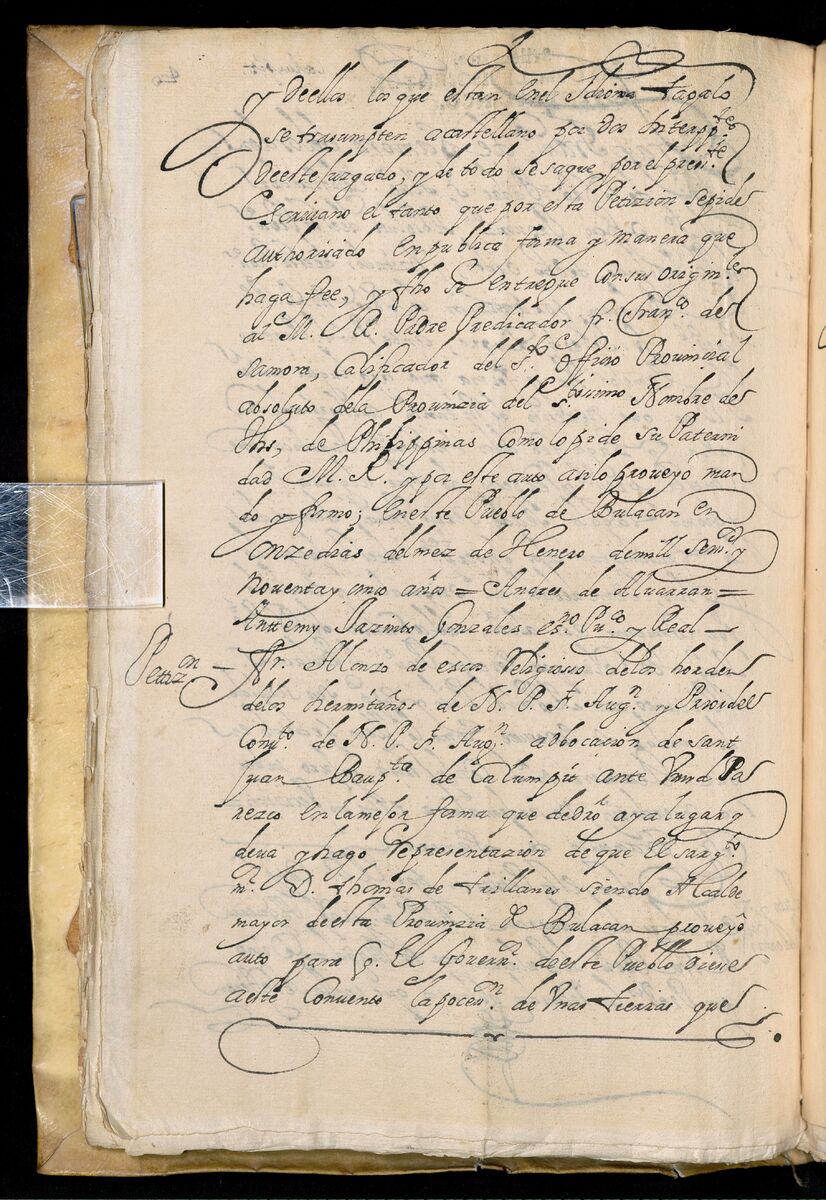 y deellos los que estan enel Idioma tagalo
se trasumpten acastellano por dos Interpp.tes
deeste Juzgado, y de todo sesaque por el press.te
Escriuano el tanto que por esta Petizion sepide
authorisado enpublica forma y manera que
haga fee, y fho se entregue Consus origin.les
al M. R. Padre Predicador fr. Fran.co de
samora, Calificador del S.to Officio Provincial
absoluto dela Prouinzia del S.tissimo Nombre de
Jhs, de Philippinas Como lo pide su Paterni
dad M. R. y por este auto asilo proveyo man
do y firmo; eneste Pueblo de Bulacan en
onze dias delmez de Henero demill seis.os y
noventa y cinco años = Andres de Aluarran =
Anttemy Jazinto Gonzales es.no Pu.co y Real –
Pettiz.on – fr. Alonzo de escos Religiosso delos horden
delos hermitaños de N. P. S. Aug.n y Prior del
Conv.to de N. P. S. Aug.n adbocasion de sant
Juan Baup.ta de Calumpit ante Vmd Pa
rezco enlamejor forma que dedro ayalugar y
deua y hago representazion de que El sarg.to
m.r D. thomas de trillanes siendo Alcalde
mayor deesta Prouinzia de Bulacan proueyo
auto para q. El Govern.or deeste Pueblo diese
aeste Convento la poces.on de Vnas tierras que